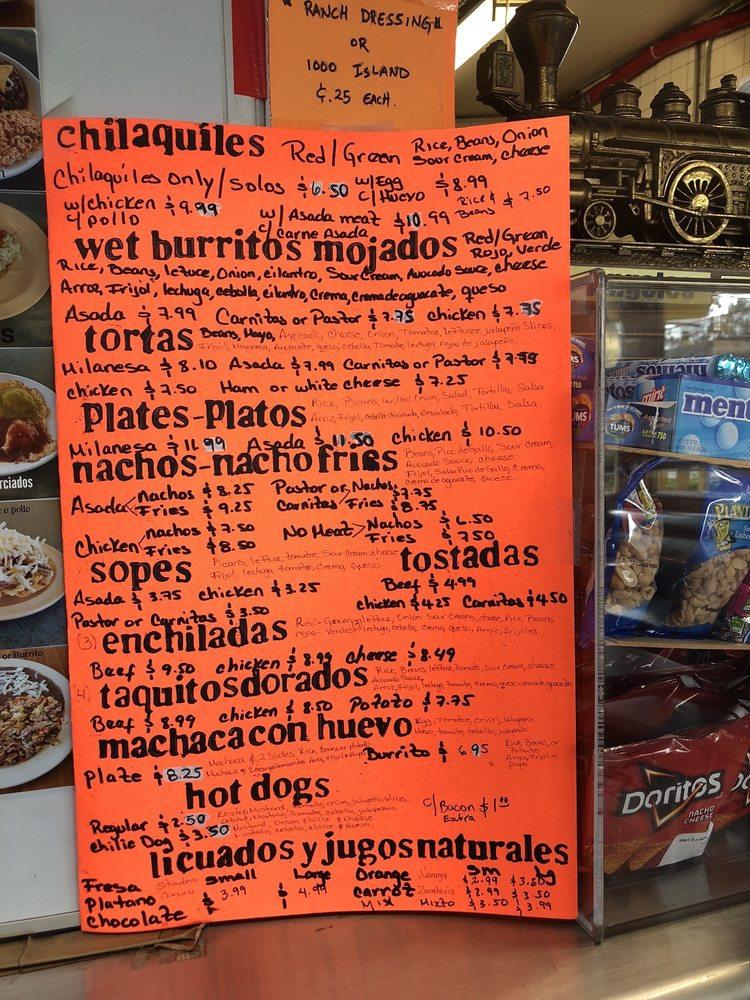 * RANCH DRESSING *
OR
1000 ISLAND
¢.25 EACH.
chilaquiles Red/Green Rice, Beans, Onion
Sour cream, cheese
Chilaquiles Only/Solos $6.50 w/Egg $8.99
c/Huevo
w/chicken $9.99 Rice & $7.50
c/pollo w/Asada meat $10.99 Beans
c/Carne Asada
wet burritos mojados Red/Green
Rojo, Verde
Rice, Beans, letuce, Onion, cilantro, Sour Cream, Avocado Sauce, cheese
Arroz, Frijol, lechuga, cebolla, cilantro, Crema, crema de aguacate, queso
Asada $7.99 Carnitas or Pastor $7.75 chicken $7.75
tortas Beans, Mayo, Avocado, cheese, Onion, Tomatoe, lettuce, jalapeño Slices,
Frijol, Mayonesa, Aguacate, queso, cebolla, Tomate, lechuga, rajas de jalapeño.
Milanesa $8.10 Asada $7.99 Carnitas or Pastor $7.75
chicken $7.50 Ham or white cheese $7.25
Plates-Platos Rice, Beans, Grilled Onion, Salad, Tortillas, Salsa
Arroz, Frijol, cebolla cocinada, Ensalada, Tortillas, Salsa
Milanesa $11.99 Asada $11.50 chicken $10.50
nachos-nacho fries Beans, Pico de Gallo, Sour Cream,
Avocado Sauce, cheese.
Frijol, Salsa Pico de Gallo, Crema,
crema de aguacate, Queso.
Asada nachos $8.25 Pastor or Nachos $7.75
Fries $9.25 Carnitas Fries $8.75
chicken nachos $7.50 No Meat Nachos $6.50
Fries $8.50 Fries $7.50
sopes Beans, lettuce, tomatoe, Sour Cream, cheese
Frijol, lechuga, tomate, Crema, Queso
tostadas
Asada $3.75 chicken $3.25 Beef $4.99
Pastor or Carnitas $3.50 chicken $4.25 Carnitas $4.50
(3) enchiladas Red-Green lettuce, Onion, Sour cream, cheese, Rice, Beans
rojas-Verdes lechuga, cebolla, Crema, queso, Arroz, Frijoles
Beef $9.50 chicken $8.99 cheese $8.49
(4) taquitos dorados Rice, Beans, lettuce, tomato, Sour cream, cheese
Avocado Sauce
Arroz, Frijol, lechuga, tomate, Crema, queso, crema de aguacate
Beef $8.99 chicken $8.50 Potato $7.75
machaca con huevo Egg, Tomatoe, onion, jalapeño
Huevo, tomate, cebolla, jalapeño
Plate $8.25 Machaca & 2 Sides Rice, Beans or Potato Burrito $6.95 Rice, Beans, or
Potatoe
Arroz, Frijol o
Papa
hot dogs
Regular $2.50 c/Bacon $1.00
Extra
chilie Dog $3.50
licuados y jugos naturales
small Large Orange Naranja sm lg
Fresa Strawberry $2.99 $3.50
Platano Banana $3.99 $4.99 carrot Zanahoria $2.99 $3.50
chocolate Mix Mixto $3.50 $3.99
TUMS
mint
ment
Doritos
NACHO
CHEESE